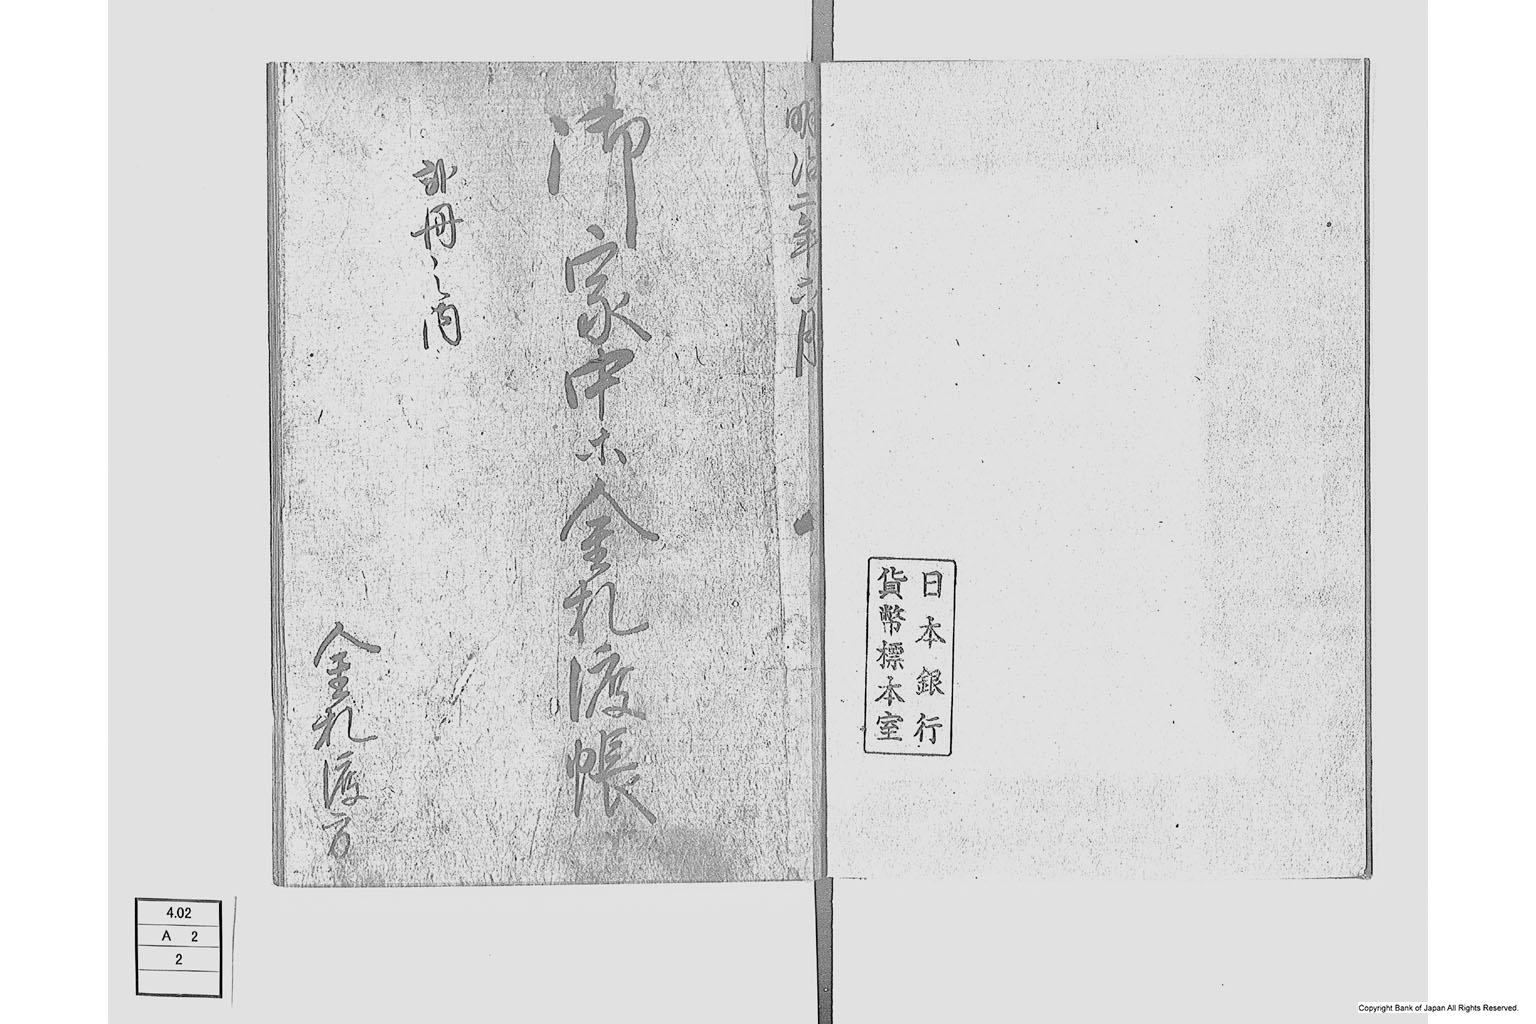 日本銀行
貨幣標本室
明治二年六月
御家中江金札渡帳
弐冊之内
金札渡方
4.02
A 2
2
Copyright Bank of Japan All Rights Reserved.